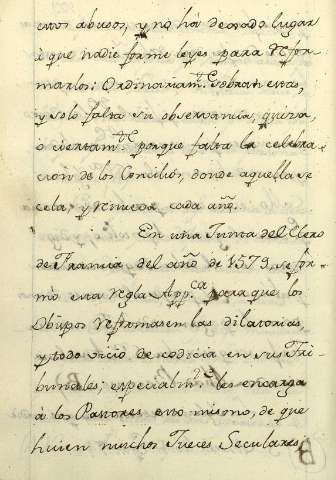 estos abusos, y no há dexado lugar
à que nadie forme leyes para refor-
marlos: Ordinariam.te sobran estas,
y solo falta su observancia, quiza,
o ciertam.te porque falta la celebra-
cion de los Concilios, donde aquella se
cela, y renueva cada año.
En una Junta del Clero
de Francia del año de 1579, se for-
mó esta regla App.ca para que los
Obispos reformasen las dilatorias,
y todo vicio de codicia en sus Tri-
bunales; especialm.te les encarga
á los Pastores esto mismo, de que
huien muchos Jueces Seculares